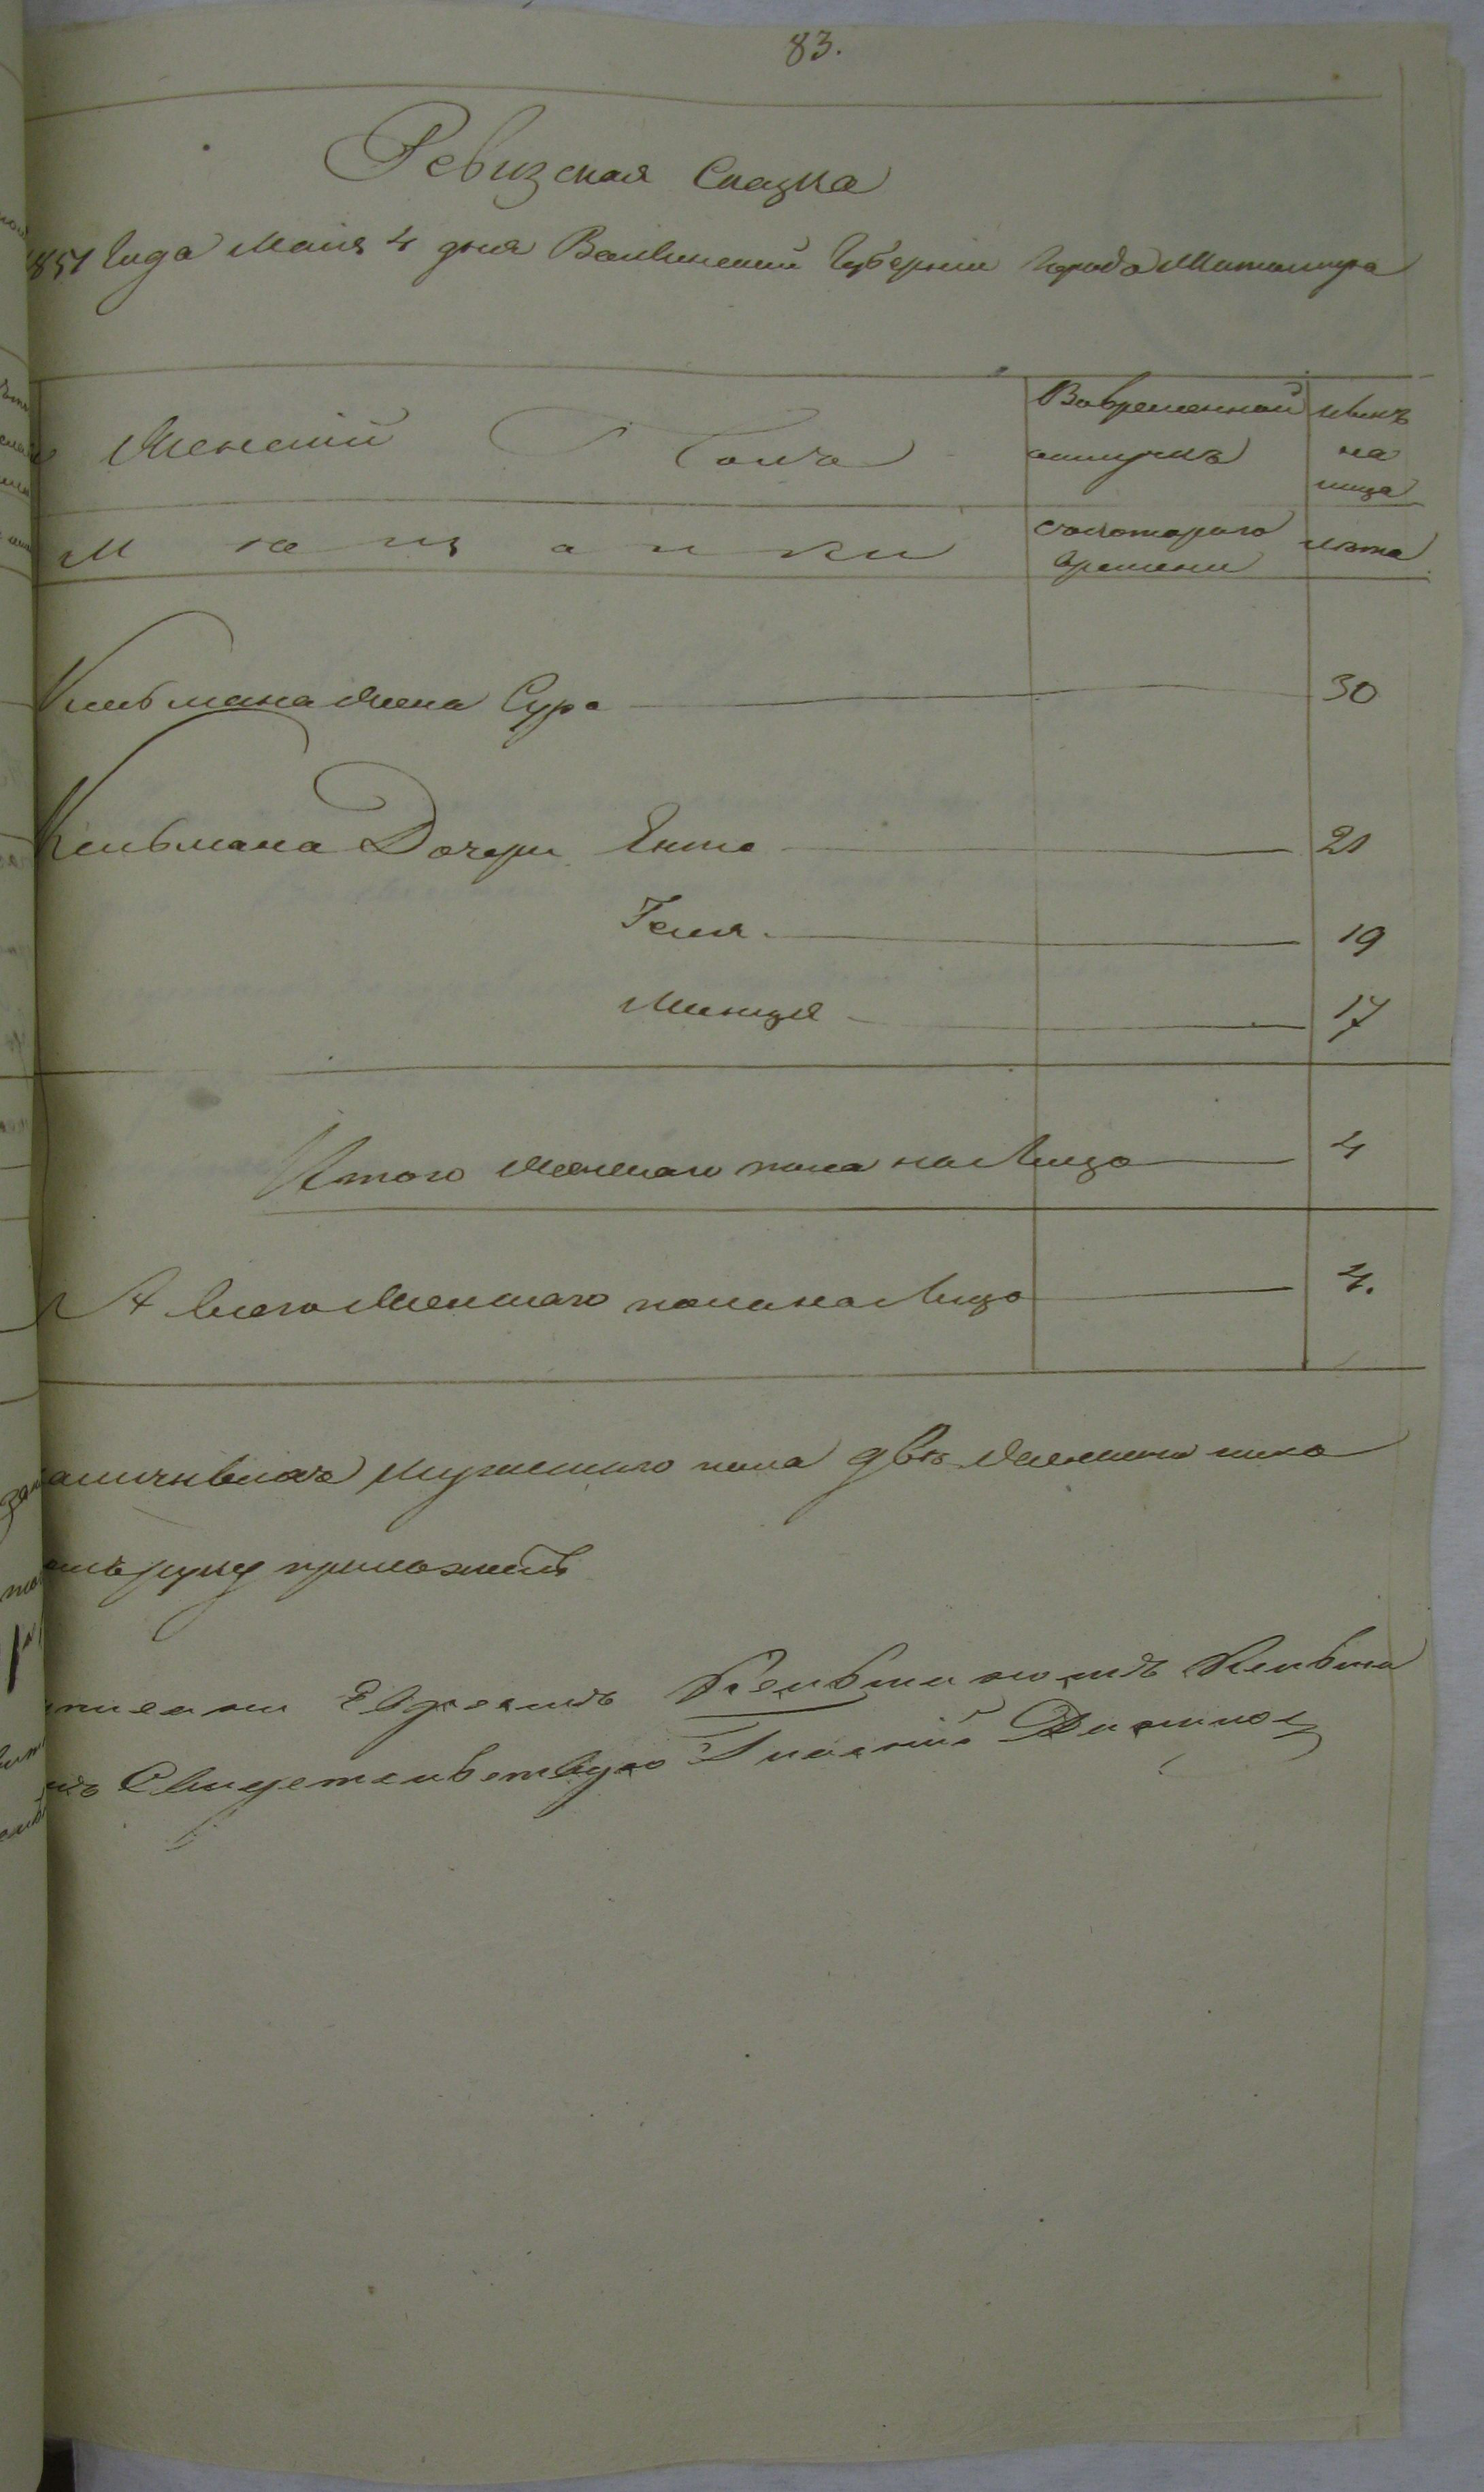 83.
Ревизская Сказка
1851 Года Маія 4 дня Волынской Губерніи Города Житомира
Женскій Полъ
Вовременной отлучкѣ
нынѣ на лицо
Мѣщанки
Скотораго времени
лѣта
Кельмана жена Сура 30
Кельмана Дочери Ента 21
Геня 19
Минця 17
Итого женскаго пола на Лицо 4
А Всего Женскаго пола на Лицо 4.
мужескаго пола двѣ женскаго
руку приложилъ
Евреемъ Кельманомъ
Свидетельствую Гласній